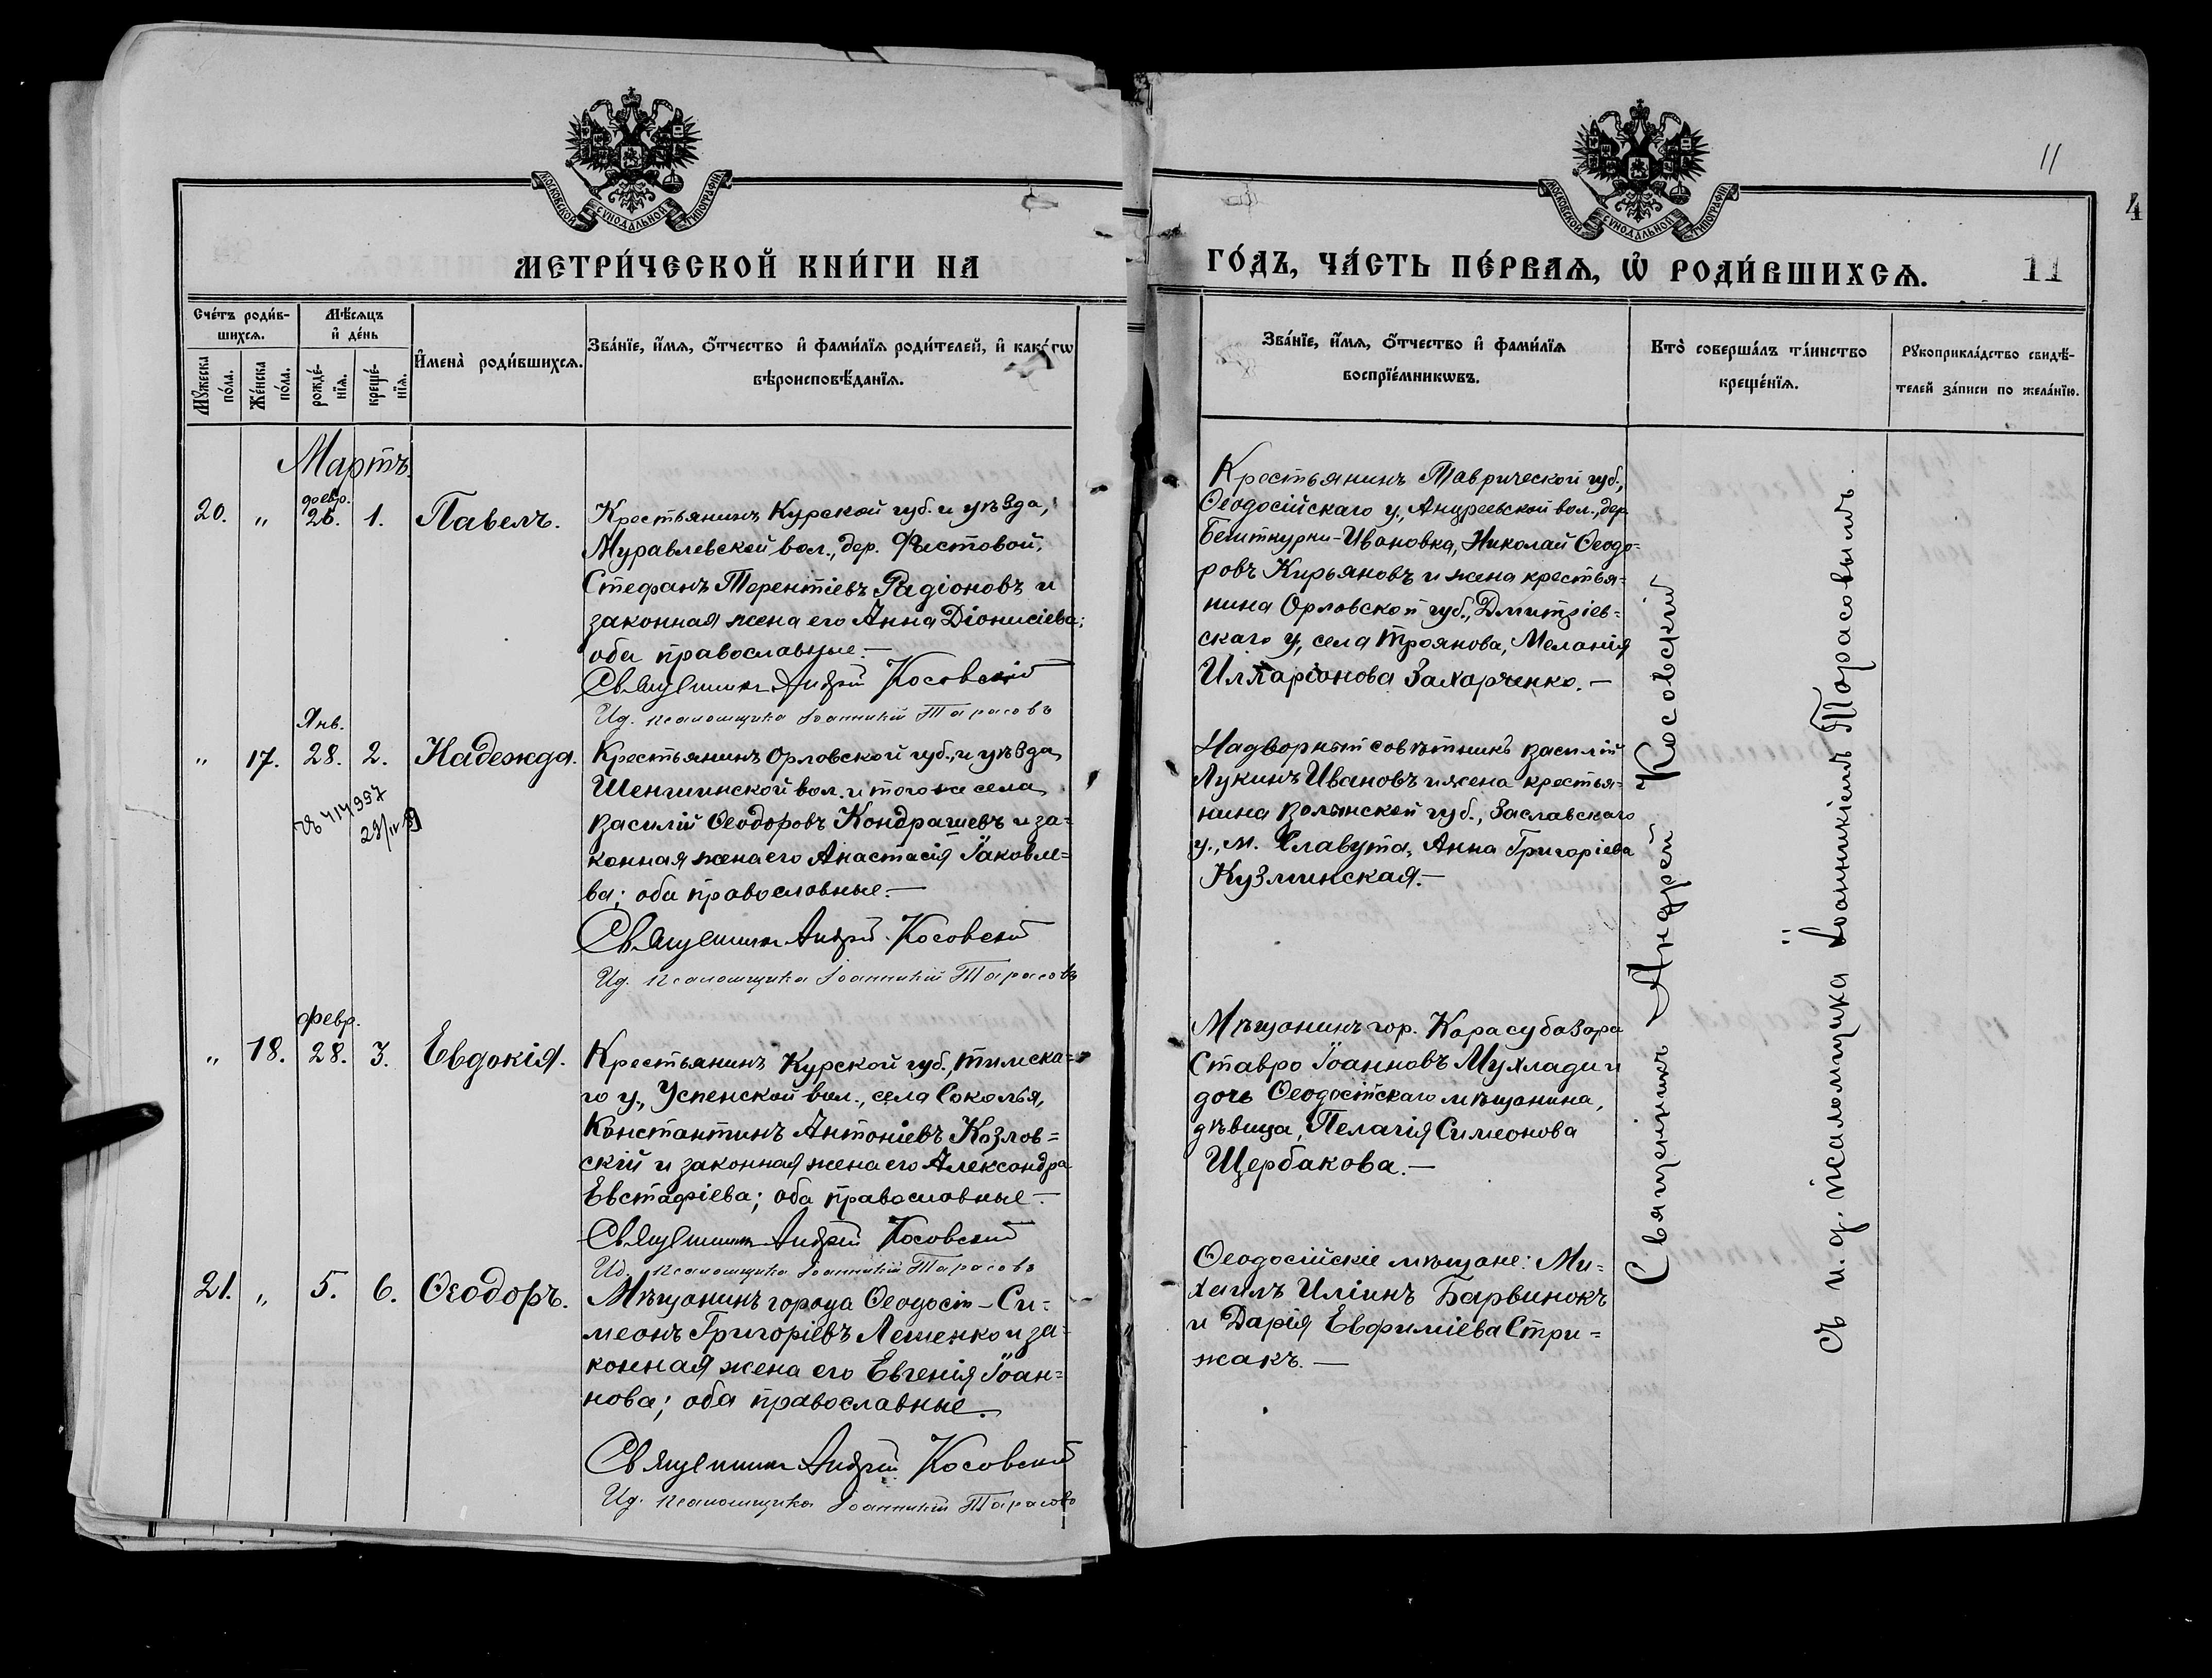 МОСКОВСКОЙ СѴНОДАЛЬНОЙ ТИПОГРАФІИ
МЕТРИ́ЧЕСКОЙ КНИ́ГИ НА
Сче́тъ роди́в-
шихсѧ.
Мѣ́сѧцъ
и҆ де́нь
Мꙋ́жеска
по́ла.
Же́нска
по́ла.
рожде́-
нїѧ.
креще́-
нїѧ.
И҆мена̀ роди́вшихсѧ.
Зва́нїе, и҆́мѧ, ѻ҆́тчество и҆ фами́лїѧ роди́телей, и҆ како́гѡ
вѣроисповѣ́данїѧ.
Мартъ.
февр.
20. " 26. 1. Павелъ.
Крестьянинъ Курской губ. и уѣзда,
Муравлевской вол., дер. Фѣстовой,
Стефанъ Терентіевъ Радіоновъ и
законная жена его Анна Діонисіева;
оба православные.—
Священникъ Андрей Косовскій
Ид. псаломщика Іоанникій Тарасовъ
Янв.
" 17. 28. 2. Надежда.
Крестьянинъ Орловской губ., и уѣзда,
Шеншинской вол. и того же села
Василій Ѳеодоровъ Кондрашевъ и за-
конная жена его Анастасія Іаковле=
ва; оба православные.—
Священникъ Андрей Косовскій
Ид. псаломщика Іоанникій Тарасовъ
февр.
" 18. 28. 3. Евдокія.
Крестьянинъ Курской губ., Тимска=
го у., Успенской вол., села Соколья,
Константинъ Антоніевъ Козлов=
скій и законная жена его Александра
Евстафіева; оба православные.—
Священникъ Андрей Косовскій
Ид. псаломщика Іоанникій Тарасовъ
21. " 5. 6. Ѳеодоръ.
Мѣщанинъ города Ѳеодосіи – Си=
меонъ Григоріевъ Лешенко и за-
конная жена его Евгенія Іоан=
нова; оба православные.
Священникъ Андрей Косовскій
Ид. псаломщика Іоанникій Тарасовъ
11
4
МОСКОВСКОЙ СѴНОДАЛЬНОЙ ТИПОГРАФІИ
ГО́ДЪ, ЧА́СТЬ ПЕ́РВАѦ, Ѽ РОДИ́ВШИХСѦ.
11
Зва́нїе, и҆́мѧ, ѻ҆́тчество и҆ фами́лїѧ
воспрїе́мникѡвъ.
Кто̀ соверша́лъ та́инство
креще́нїѧ.
Рꙋкоприкла́дство свидѣ́-
телей за́писи по жела́нїю.
Крестьянинъ Таврической губ.,
Ѳеодосійскаго у., Андреевской вол., дер.
Бешткурки-Ивановка, Николай Ѳеодо=
ровъ Кирьяновъ и жена крестья=
нина Орловской губ., Дмитріев=
скаго у., села Троянова, Меланія
Илларіонова Захарченко.—
Надворный совѣтникъ Василій
Лукинъ Ивановъ и жена крестья=
нина Волынской губ., Заславскаго
у., м. Славута, Анна Григоріева
Кузминская.—
Мѣщанинъ гор. Карасубазара
Ставро Іоанновъ Мухлади и
дочь Ѳеодосійскаго мѣщанина,
дѣвица, Пелагія Симеонова
Щербакова.—
Ѳеодосійскіе мѣщане: Ми=
хаилъ Иліинъ Барвинокъ
и Дарія Евфиміева Стри=
жакъ.—
Священникъ Андрей Косовскій
съ и. д. псаломщика Іоанникіемъ Тарасовымъ.